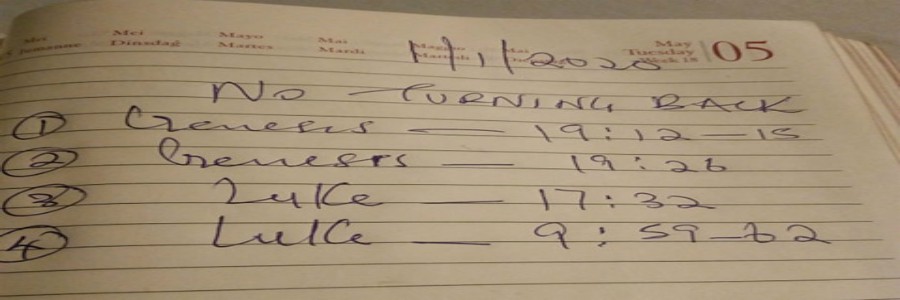 Mei Mei Mayo Mai Maggio Mai May 05
Dinsdag Martes Mardi Martedi Tuesday
Week 18
11/1/2020
NO - TURNING BACK
① Genesis — 19:12-15
② Genesis — 19:26
③ Luke — 17:32
④ Luke — 9:59-62